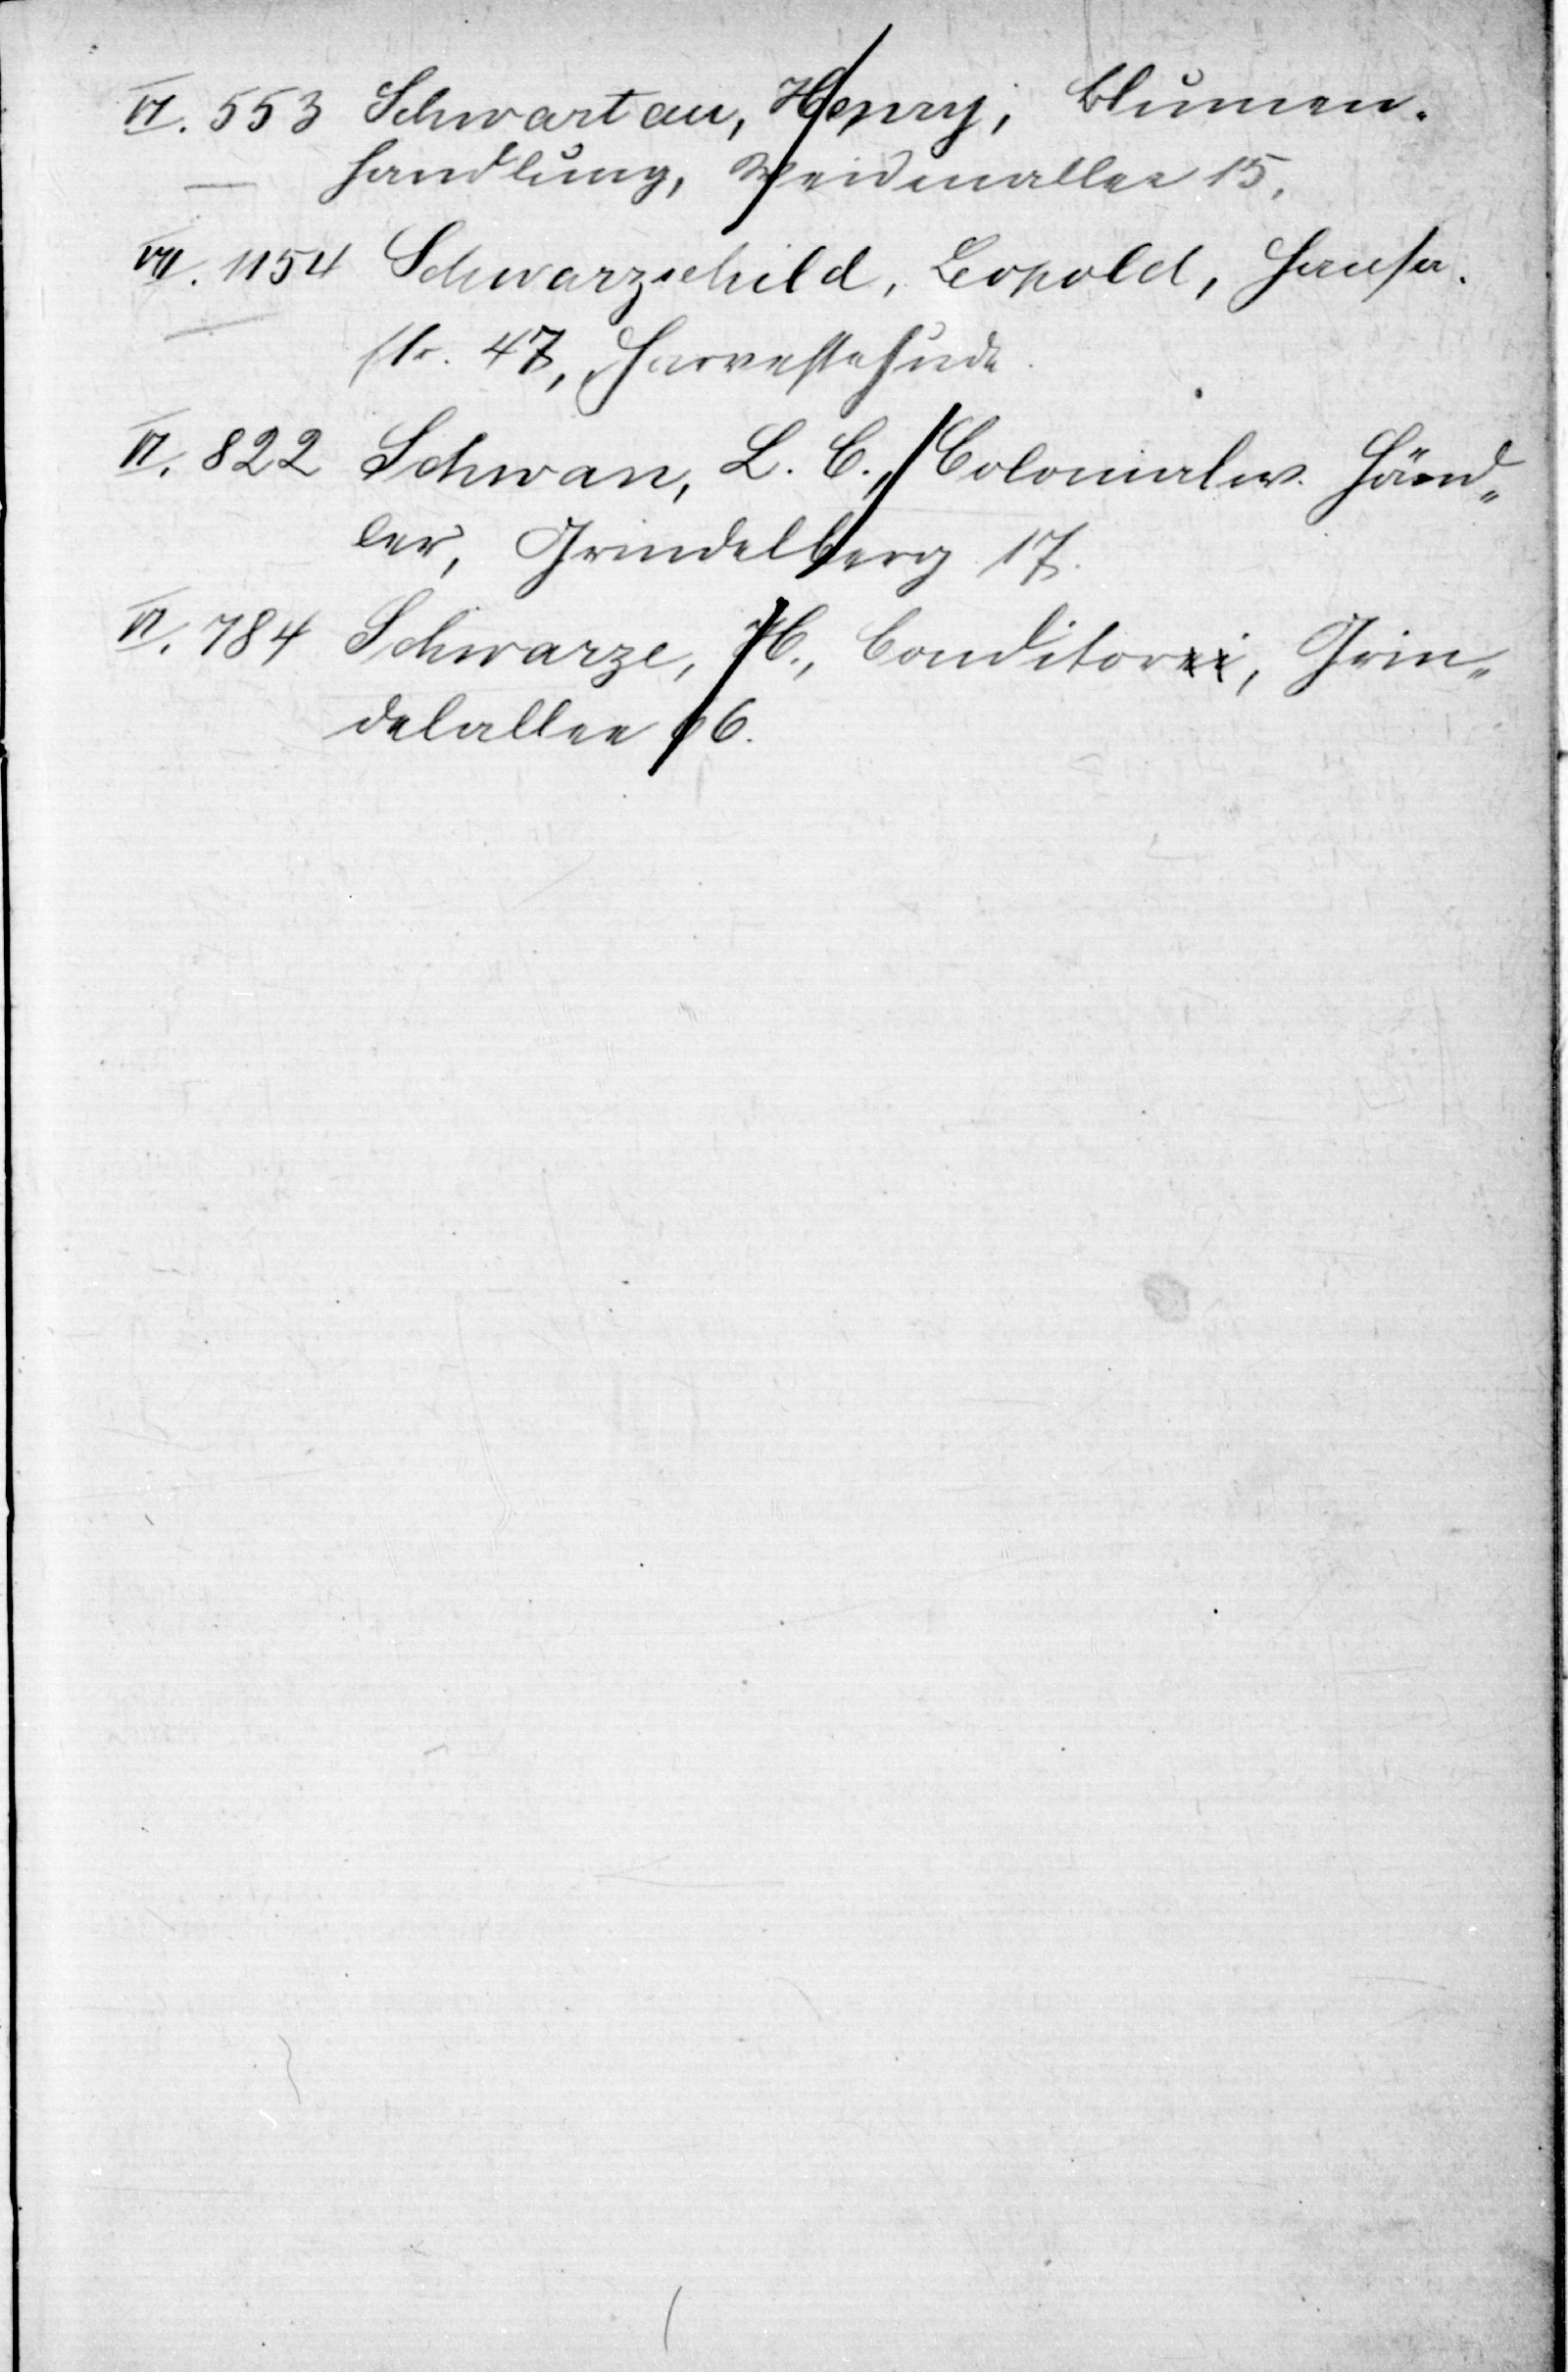 VI. 553 Schwartau, Henry, Blumen-
handlung, Weidenallee 15.
VII. 1154 Schwarzschild, Leopold, Hansa-
str. 47, Harvestehude.
VI. 822 Schwan, L. C., Colonialw. Händ„
ler, Grindelberg 17.
VI. 784 Schwarze, H., Conditorei, Grin„
delallee 6.